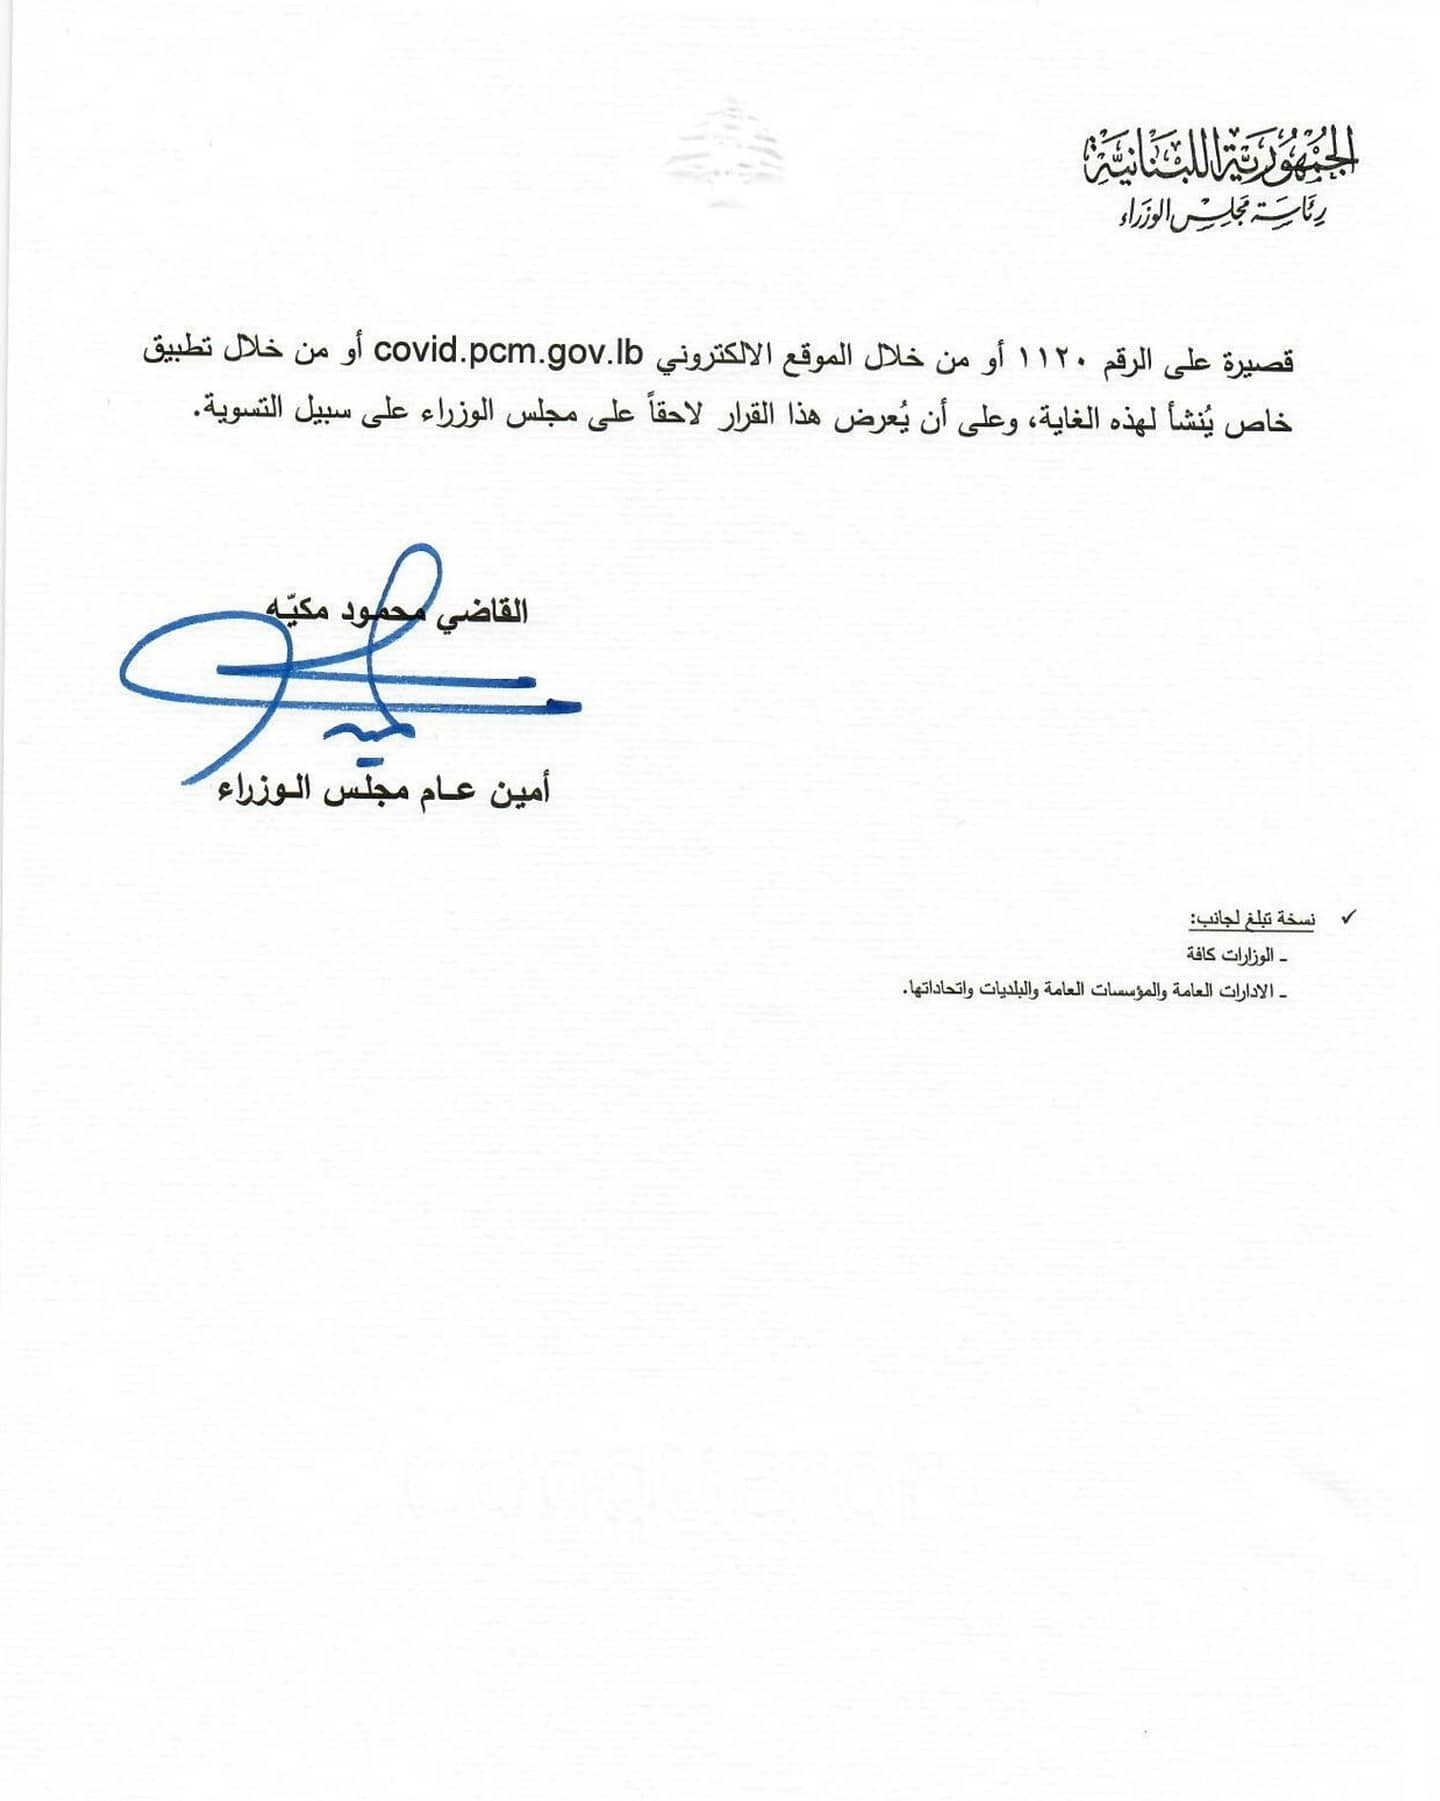 الجمهورية اللبنانية
رئاسة مجلس الوزراء
قصيرة على الرقم ١١٢٠ أو من خلال الموقع الالكتروني covid.pcm.gov.lb أو من خلال تطبيق
خاص يُنشأ لهذه الغاية، وعلى أن يُعرض هذا القرار لاحقاً على مجلس الوزراء على سبيل التسوية.
القاضي محمود مكيّه
أمين عام مجلس الوزراء
✓ نسخة تبلغ لجانب:
- الوزارات كافة
- الادارات العامة والمؤسسات العامة والبلديات واتحاداتها.